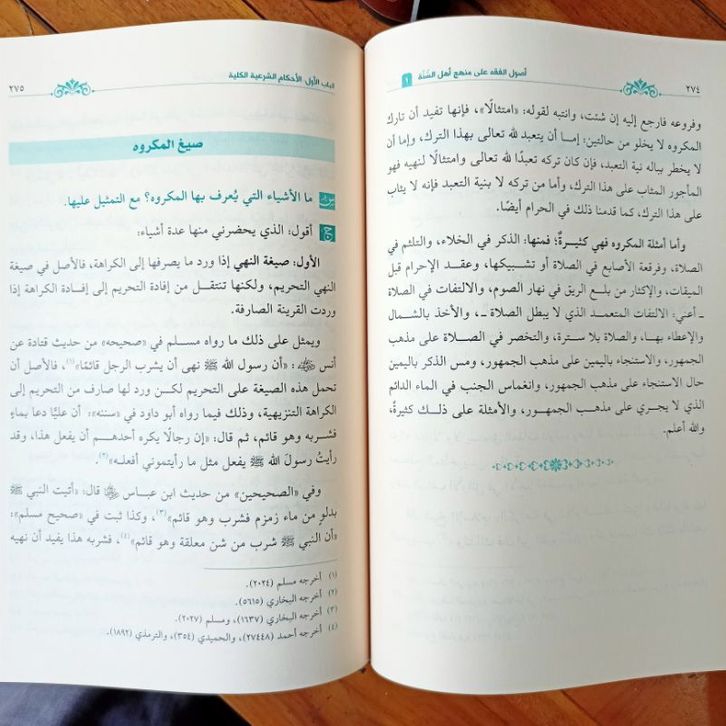 ٢٧٤
أصول الفقه على منهج أهل السُّنَّة
١
وفروعه فارجع إليه إن شئت، وانتبه لقوله: «امتثالًا»، فإنها تفيد أن تارك
المكروه لا يخلو من حالتين: إما أن يتعبد لله تعالى بهذا الترك، وإما أن
لا يخطر بباله نية التعبد، فإن كان تركه تعبدًا لله تعالى وامتثالًا لنهيه فهو
المأجور المثاب على هذا الترك، وأما من تركه لا بنية التعبد فإنه لا يثاب
على هذا الترك، كما قدمنا ذلك في الحرام أيضًا.
وأما أمثلة المكروه فهي كثيرةٌ؛ فمنها: الذكر في الخلاء، والتلثم في
الصلاة، وفرقعة الأصابع في الصلاة أو تشبيكها، وعقد الإحرام قبل
الميقات، والإكثار من بلع الريق في نهار الصوم، والالتفات في الصلاة
ـ أعني: الالتفات المتعمد الذي لا يبطل الصلاة ـ، والأخذ بالشمال
والإعطاء بها، والصلاة بلا سترة، والتخصر في الصلاة على مذهب
الجمهور، والاستنجاء باليمين على مذهب الجمهور، ومس الذكر باليمين
حال الاستنجاء على مذهب الجمهور، وانغماس الجنب في الماء الدائم
الذي لا يجري على مذهب الجمهور، والأمثلة على ذلك كثيرةٌ،
والله أعلم.
الباب الأول: الأحكام الشرعية الكلية
٢٧٥
صيغ المكروه
س ما الأشياء التي يُعرف بها المكروه؟ مع التمثيل عليها.
ج أقول: الذي يحضرني منها عدة أشياء:
الأول: صيغة النهي إذا ورد ما يصرفها إلى الكراهة، فالأصل في صيغة
النهي التحريم، ولكنها تنتقل من إفادة التحريم إلى إفادة الكراهة إذا
وردت القرينة الصارفة.
ويمثل على ذلك ما رواه مسلم في «صحيحه» من حديث قتادة عن
أنس رضي الله عنه: «أن رسول الله ﷺ نهى أن يشرب الرجل قائمًا»(١)، فالأصل أن
تحمل هذه الصيغة على التحريم لكن ورد لها صارف من التحريم إلى
الكراهة التنزيهية، وذلك فيما رواه أبو داود في «سننه»: أن عليًّا دعا بماءٍ
فشربه وهو قائم، ثم قال: «إن رجالًا يكره أحدهم أن يفعل هذا، وقد
رأيتُ رسولَ الله ﷺ يفعل مثل ما رأيتموني أفعله»(٢).
وفي «الصحيحين» من حديث ابن عباس رضي الله عنه قال: «أتيت النبي ﷺ
بدلوٍ من ماء زمزم فشرب وهو قائم»(٣)، وكذا ثبت في «صحيح مسلم»:
«أن النبي ﷺ شرب من شن معلقة وهو قائم»(٤)، فشربه هذا يفيد أن نهيه
(١) أخرجه مسلم (٢٠٢٤).
(٢) أخرجه البخاري (٥٦١٥).
(٣) أخرجه البخاري (١٦٣٧)، ومسلم (٢٠٢٧).
(٤) أخرجه أحمد (٢٧٤٤٨)، والحميدي (٣٥٤)، والترمذي (١٨٩٢).